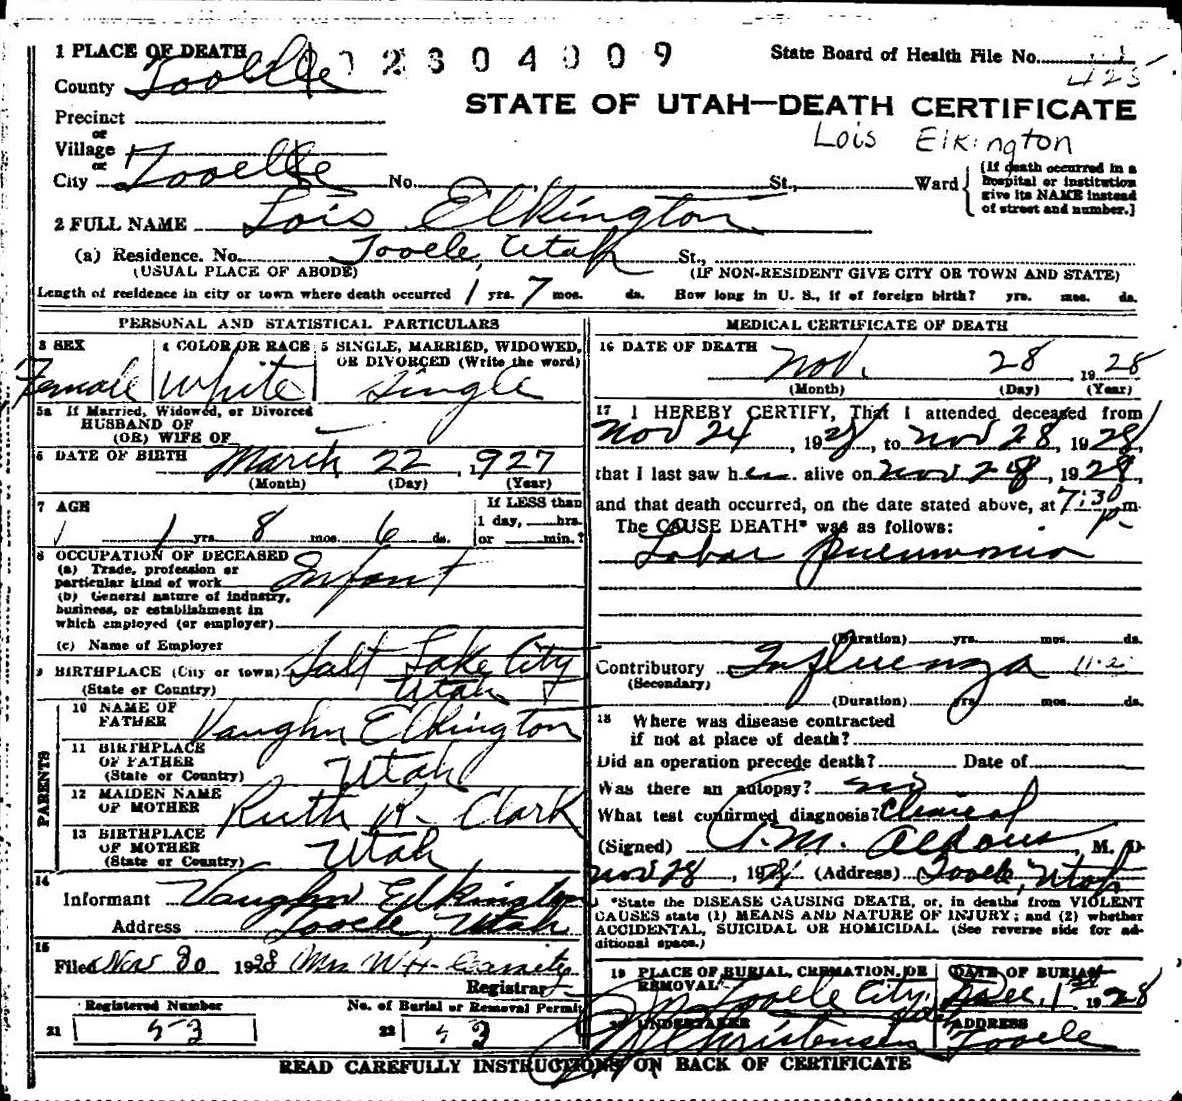 1 PLACE OF DEATH 02304009 State Board of Health File No. 425
County Tooele
STATE OF UTAH—DEATH CERTIFICATE
Precinct
or
Lois Elkington
Village
or
City Tooele No. St., Ward {[If death occurred in a hospital or institution give its NAME instead of street and number.]
2 FULL NAME Lois Elkington
(a) Residence. No. Tooele, Utah St.,
(USUAL PLACE OF ABODE) (IF NON-RESIDENT GIVE CITY OR TOWN AND STATE)
Length of residence in city or town where death occurred 1 yrs. 7 mos. ds. How long in U. S., if of foreign birth? yrs. mos. ds.
PERSONAL AND STATISTICAL PARTICULARS
3 SEX 4 COLOR OR RACE 5 SINGLE, MARRIED, WIDOWED,
OR DIVORCED (Write the word)
Female White Single
5a If Married, Widowed, or Divorced
HUSBAND OF
(OR) WIFE OF
6 DATE OF BIRTH March 22, 1927
(Month) (Day) (Year)
7 AGE If LESS than
1 day, hrs.
1 yrs. 8 mos. 6 ds. or min.?
8 OCCUPATION OF DECEASED
(a) Trade, profession or
particular kind of work Infant
(b) General nature of industry,
business, or establishment in
which employed (or employer)
(c) Name of Employer
9 BIRTHPLACE (City or town) Salt Lake City
(State or Country) Utah
PARENTS
10 NAME OF
FATHER Vaughn Elkington
11 BIRTHPLACE
OF FATHER
(State or Country) Utah
12 MAIDEN NAME
OF MOTHER Ruth R. Clark
13 BIRTHPLACE
OF MOTHER
(State or Country) Utah
14
Informant Vaughn Elkington
Address Tooele, Utah
15
Filed Nov 30 1928 Mrs W H
Registrar
Registered Number No. of Burial or Removal Permit
21 53 22 53
MEDICAL CERTIFICATE OF DEATH
16 DATE OF DEATH
Nov. 28 1928
(Month) (Day) (Year)
17 I HEREBY CERTIFY, That I attended deceased from
Nov 24, 1928, to Nov 28, 1928,
that I last saw her alive on Nov 28, 1928,
and that death occurred, on the date stated above, at 7:30 p m.
The CAUSE DEATH* was as follows:
Lobar Pneumonia
(Duration) yrs. mos. ds.
Contributory Influenza 11-2
(Secondary)
(Duration) yrs. mos. ds.
18 Where was disease contracted
if not at place of death?
Did an operation precede death? Date of
Was there an autopsy? no
What test confirmed diagnosis? Clinical
(Signed) T.M. Aldous, M. D.
Nov 28, 1928 (Address) Tooele, Utah
*State the DISEASE CAUSING DEATH, or, in deaths from VIOLENT
CAUSES state (1) MEANS AND NATURE OF INJURY; and (2) whether
ACCIDENTAL, SUICIDAL OR HOMICIDAL. (See reverse side for ad-
ditional space.)
19 PLACE OF BURIAL, CREMATION, OR DATE OF BURIAL
REMOVAL
Tooele City, Dec. 1st 1928
20 UNDERTAKER ADDRESS
Christensen Tooele
READ CAREFULLY INSTRUCTIONS ON BACK OF CERTIFICATE